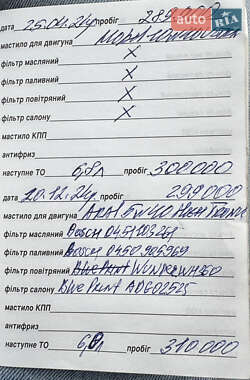 auto RIA
дата 25.04.24р пробіг 289000
мастило для двигуна
фільтр масляний X
фільтр паливний X
фільтр повітряний X
фільтр салону X
мастило КПП
антифриз
наступне ТО 6,8л пробіг 300 000
дата 20.12.24р пробіг 299 000
мастило для двигуна 5W40
фільтр масляний Bosch
фільтр паливний Bosch
фільтр повітряний Blue Print
фільтр салону Blue Print ADG02525
мастило КПП
антифриз
наступне ТО 6,8л пробіг 310 000